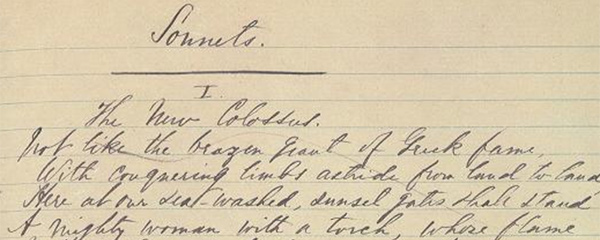 Sonnets.
I.
The New Colossus.
Not like the brazen giant of Greek fame,
With conquering limbs astride from land to land
Here at our sea-washed, sunset gates shall stand
A mighty woman with a torch, whose flame